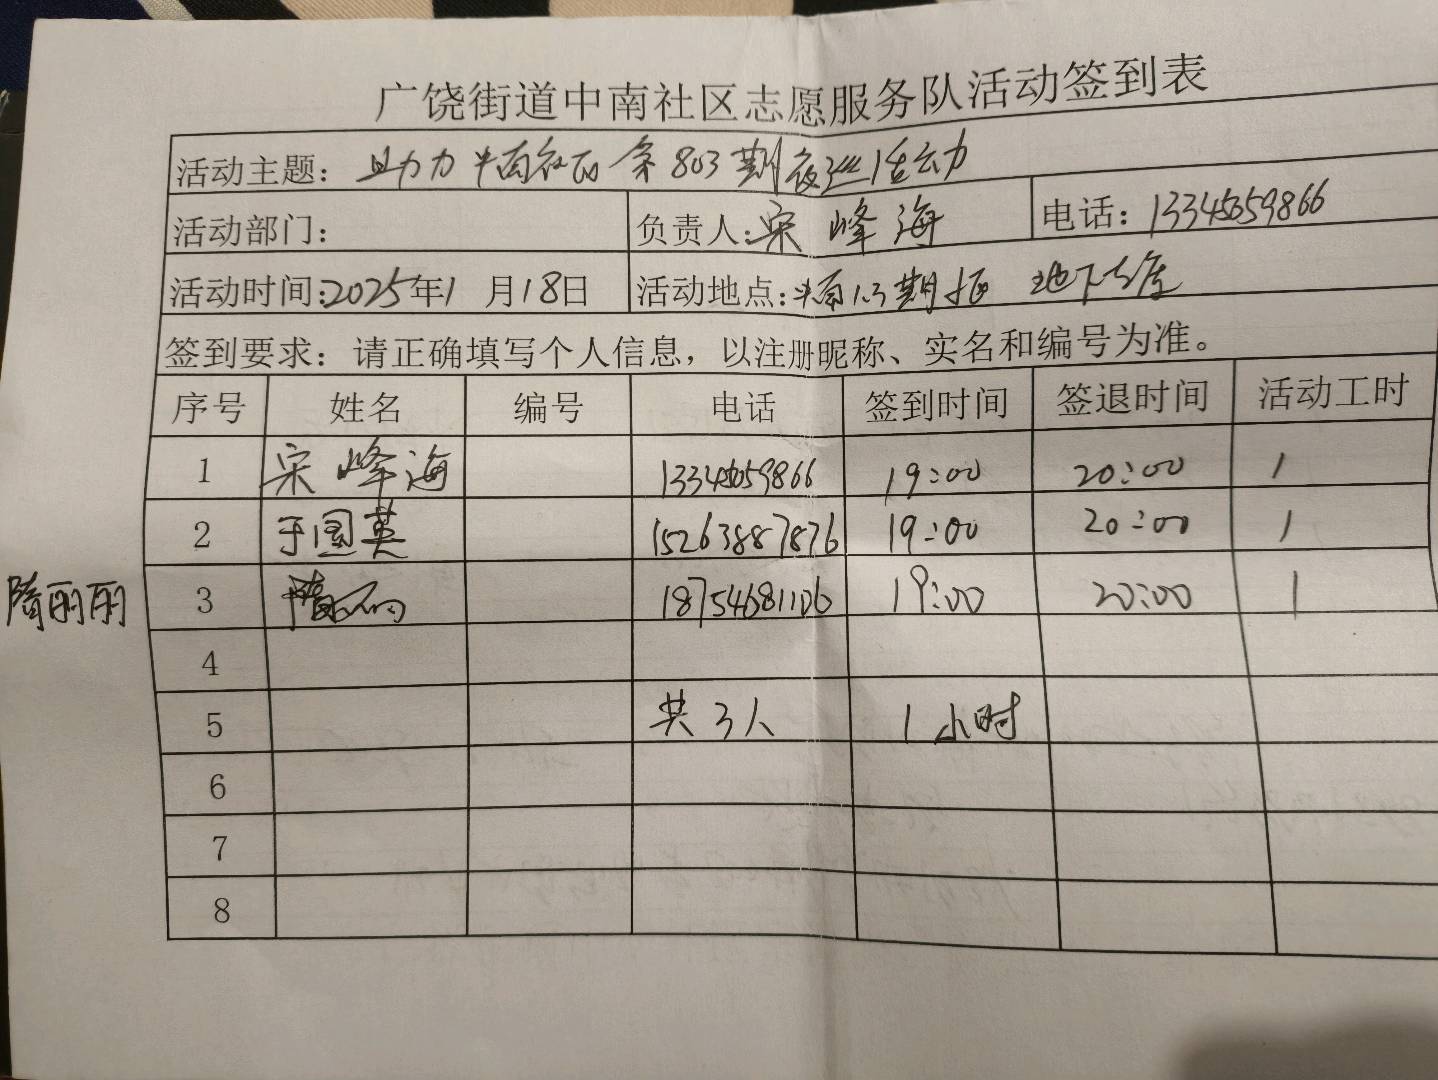 广饶街道中南社区志愿服务队活动签到表
活动主题：助力中南社区第803期夜巡活动
活动部门： 负责人：宋峰海 电话：13345059866
活动时间：2025年1月18日 活动地点：中南1.3期 地下车库
签到要求：请正确填写个人信息，以注册昵称、实名和编号为准。
序号 姓名 编号 电话 签到时间 签退时间 活动工时
1 宋峰海 13345059866 19:00 20:00 1
2 于国英 15263887876 19:00 20:00 1
隋丽丽 3 隋丽丽 18754681106 19:00 20:00 1
4
5 共3人 1小时
6
7
8